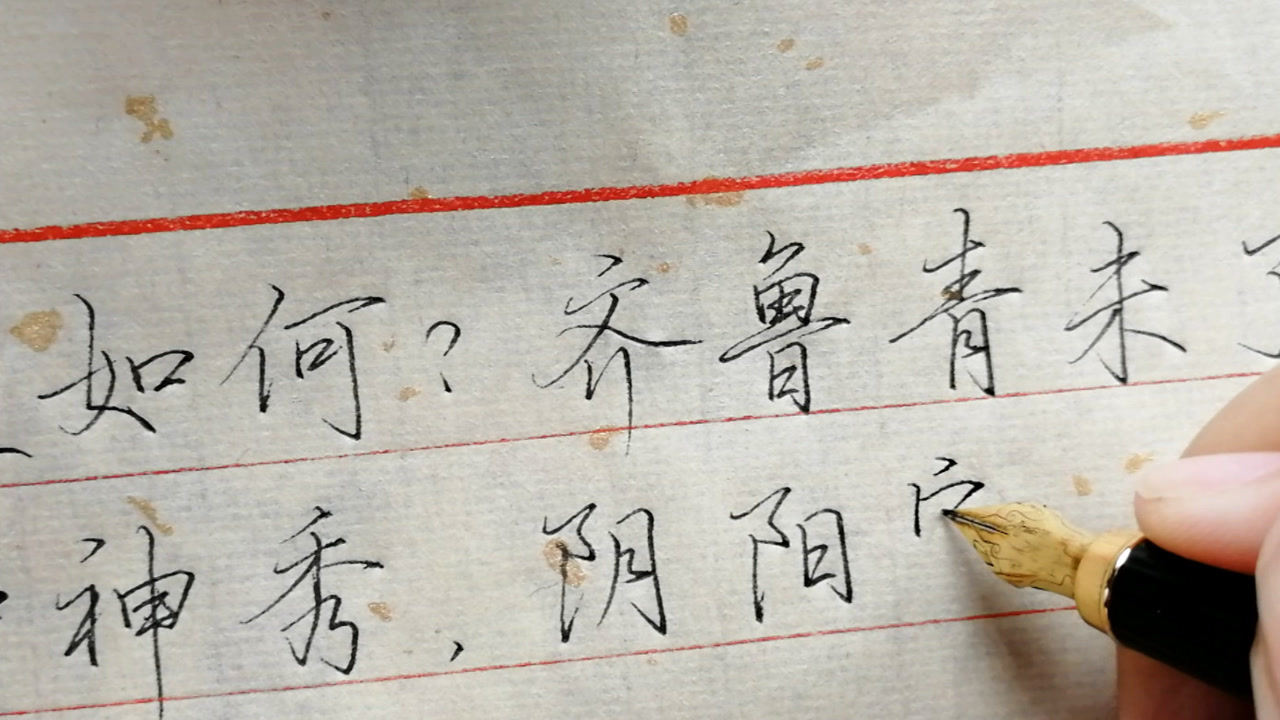 如何？齐鲁青未了
神秀，阴阳